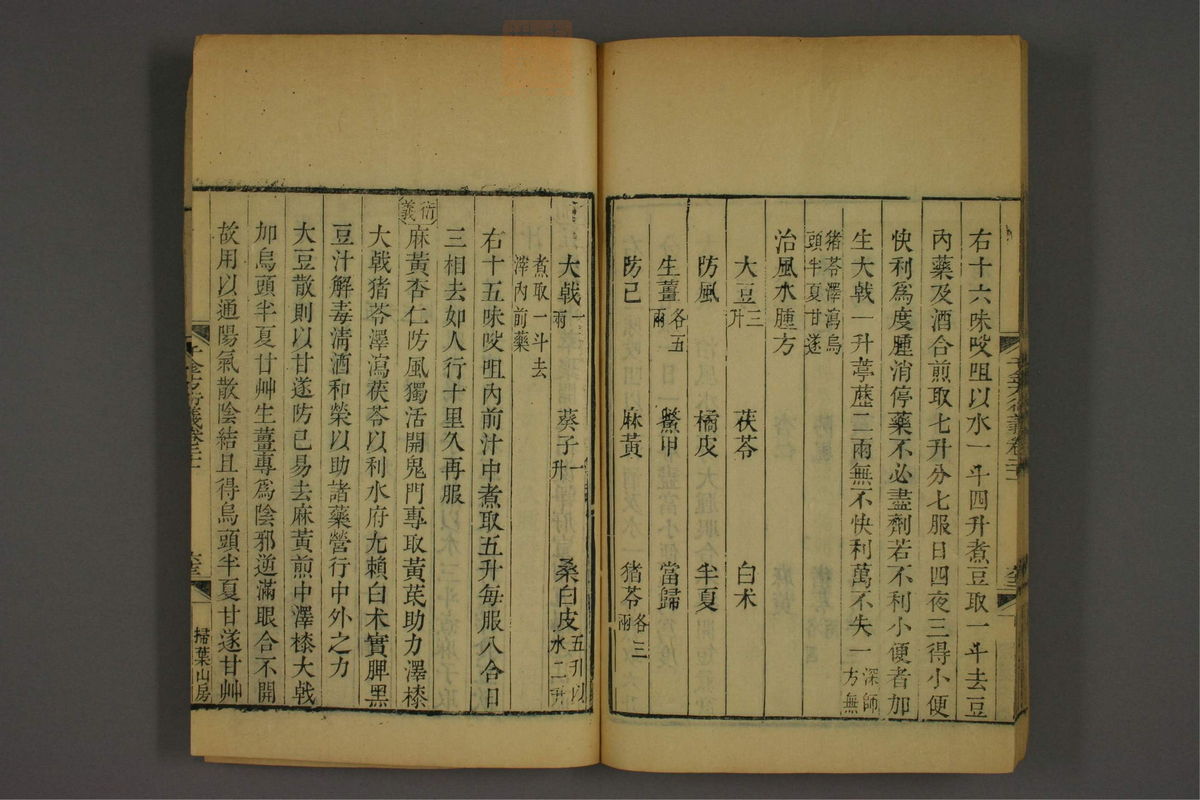 右十六味㕮咀以水一斗四升煮豆取一斗去豆
內藥及酒合煎取七升分七服日四夜三得小便
快利為度腫消停藥不必盡劑若不利小便者加
生大戟一升葶藶二兩無不快利萬不失一深師方無
猪苓澤瀉烏頭半夏甘遂
治風水腫方
大豆三升 茯苓 白朮
防風 橘皮 半夏
生薑各五兩 鱉甲 當歸
防己 麻黃 猪苓各三兩
大戟一兩 葵子一升 桑白皮五升以水二升
煮取一斗去滓內前藥
右十五味㕮咀內前汁中煮取五升每服八合日
三相去如人行十里久再服
衍義
麻黃杏仁防風獨活開鬼門專取黃芪助力澤㯃
大戟猪苓澤瀉茯苓以利水府尢賴白朮實脾黑
豆汁解毒淸酒和榮以助諸藥營行中外之力
大豆散則以甘遂防己易去麻黃煎中澤㯃大戟
加烏頭半夏甘艸生薑專爲陰邪逆滿眼合不開
故用以通陽氣散陰結且得烏頭半夏甘遂甘艸
千金方衍義卷二十一
掃葉山房